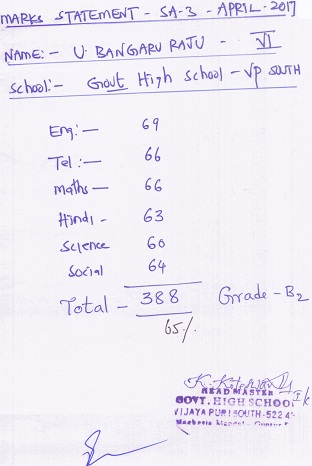 MARKS STATEMENT - SA-3 - APRIL-2017
NAME:- U. BANGARU RAJU - VI
School:- Govt High school - VP SOUTH
Eng:- 69
Tel:- 66
maths- 66
Hindi- 63
Science 60
Social 64
Total - 388 Grade-B2
65%
HEAD MASTER
GOVT. HIGH SCHOOL
VIJAYA PURI SOUTH-522 4